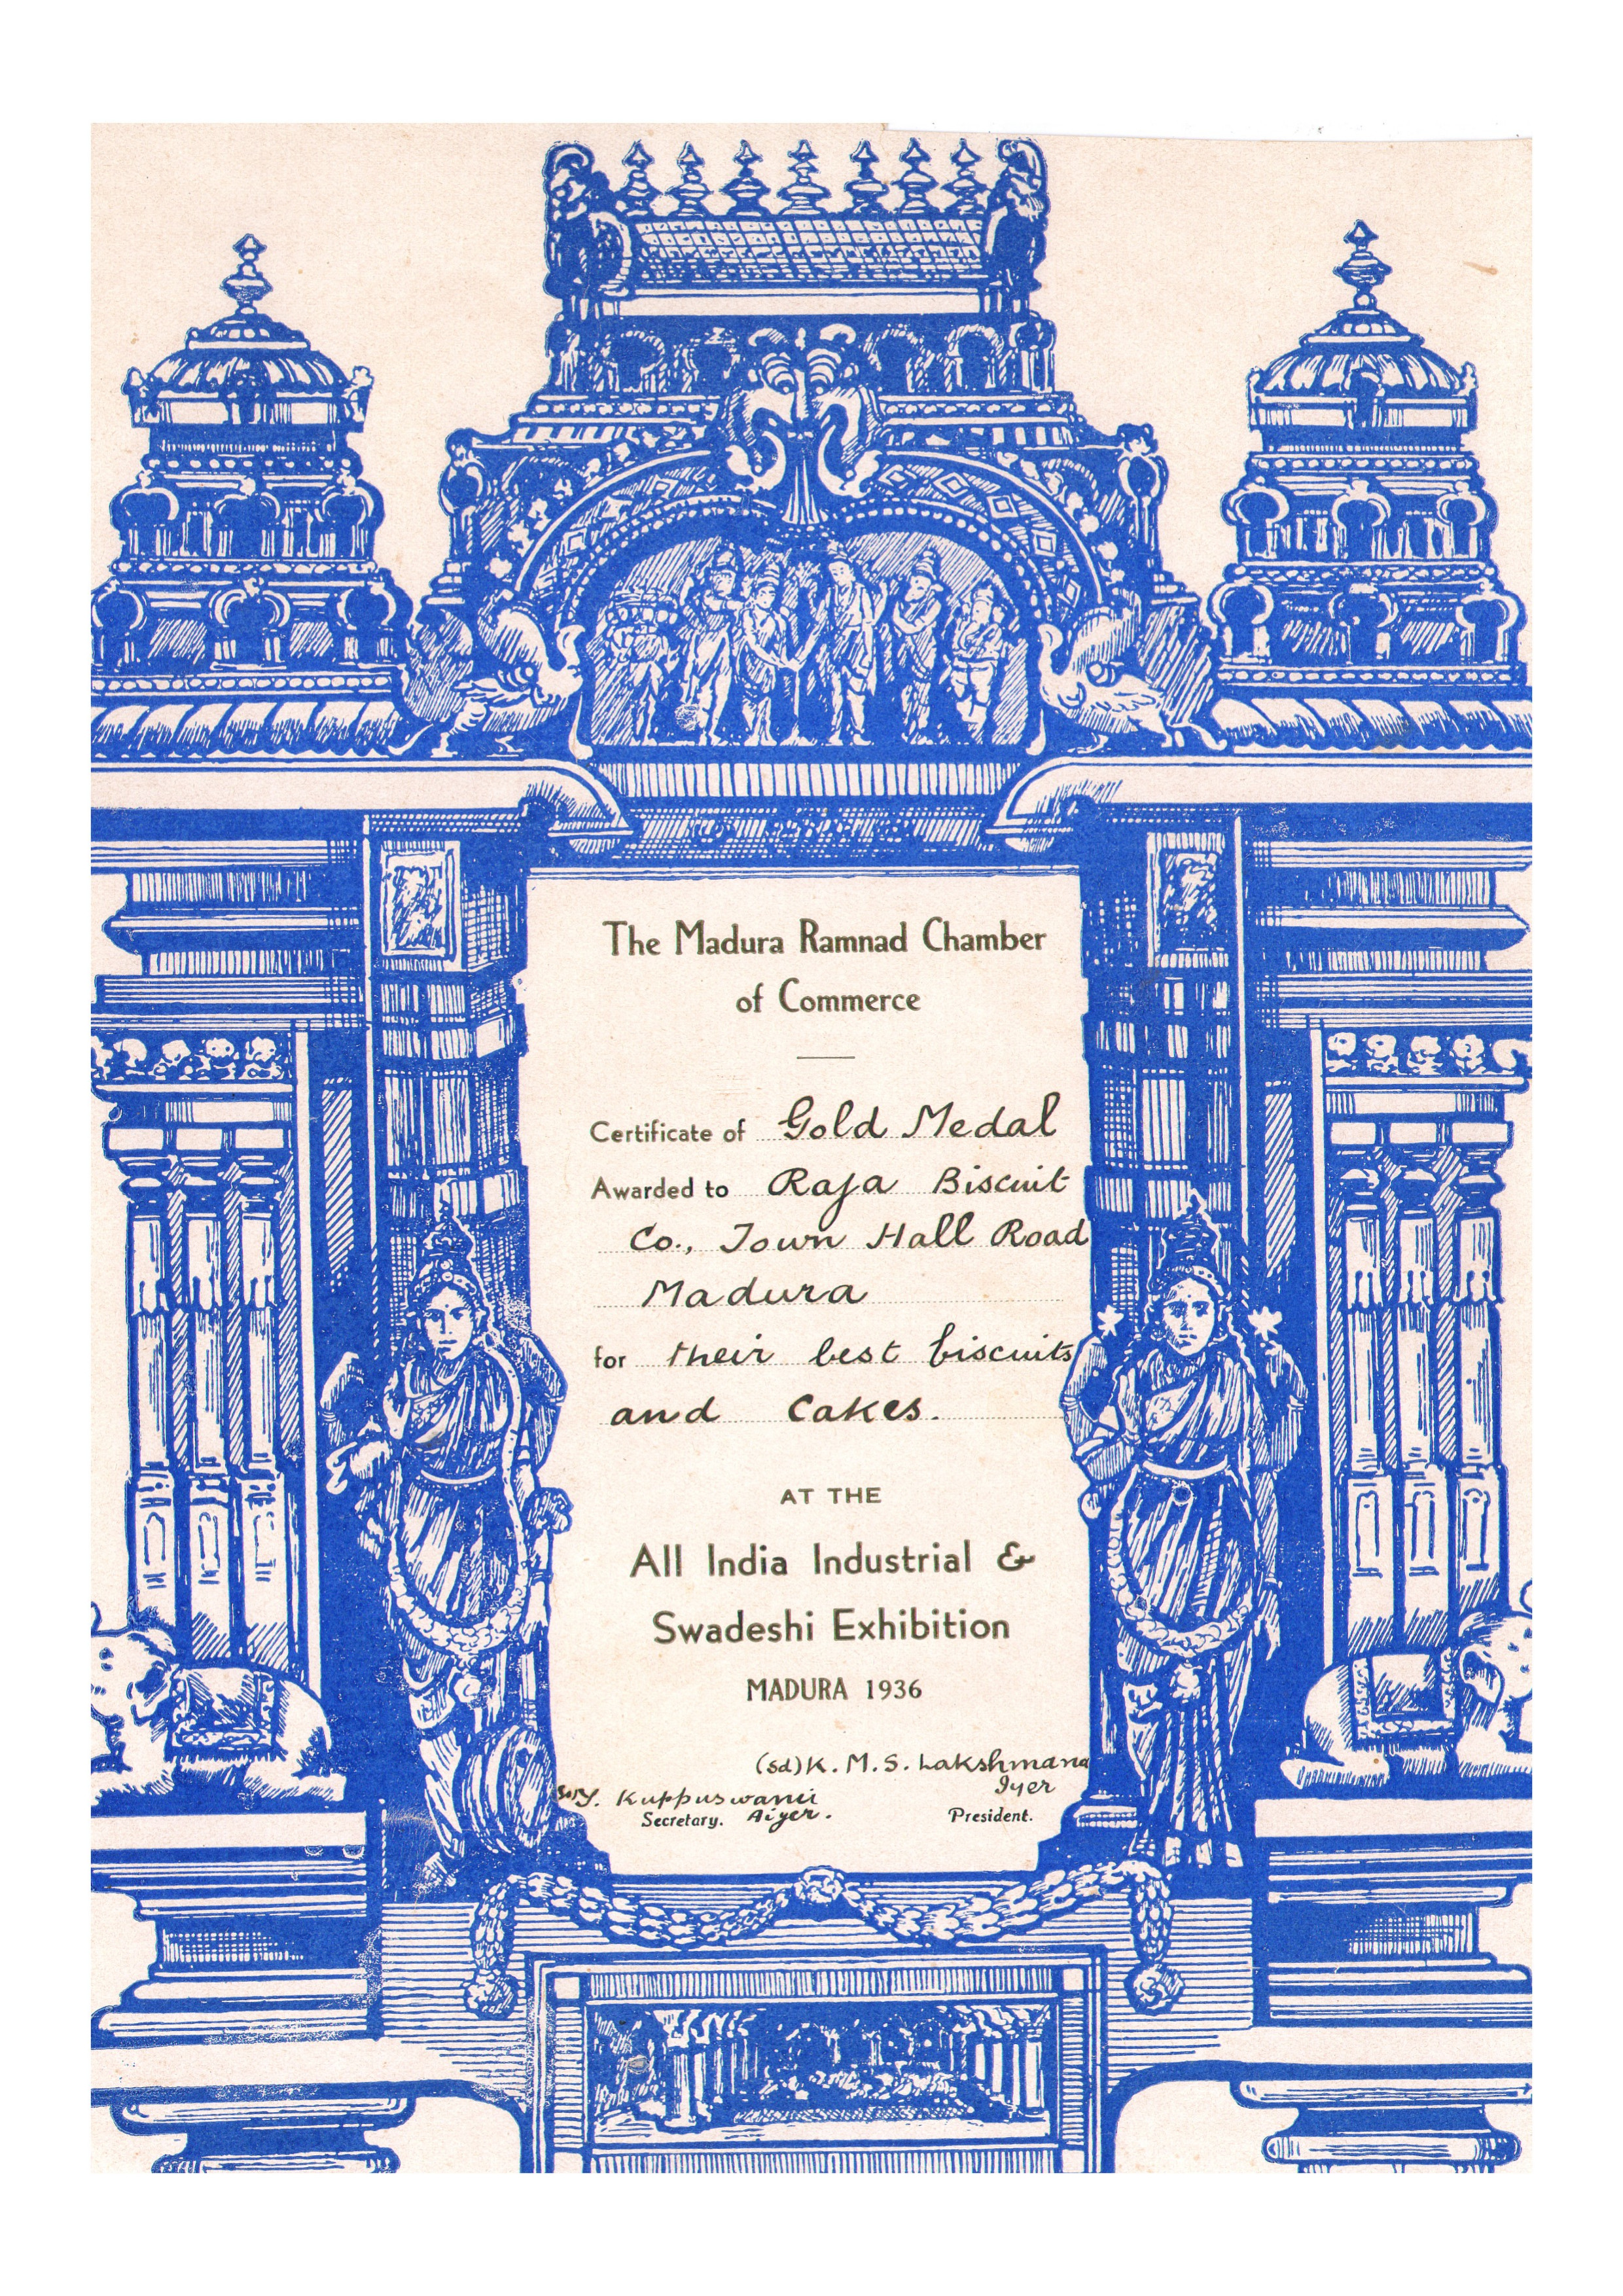 The Madura Ramnad Chamber
of Commerce
Certificate of Gold Medal
Awarded to Raja Biscuit
Co., Town Hall Road
Madura
for their best biscuits
and Cakes.
AT THE
All India Industrial &
Swadeshi Exhibition
MADURA 1936
(sd) K. M. S. Lakshmana
Iyer
President.
Y. Kuppuswami
Aiyer.
Secretary.